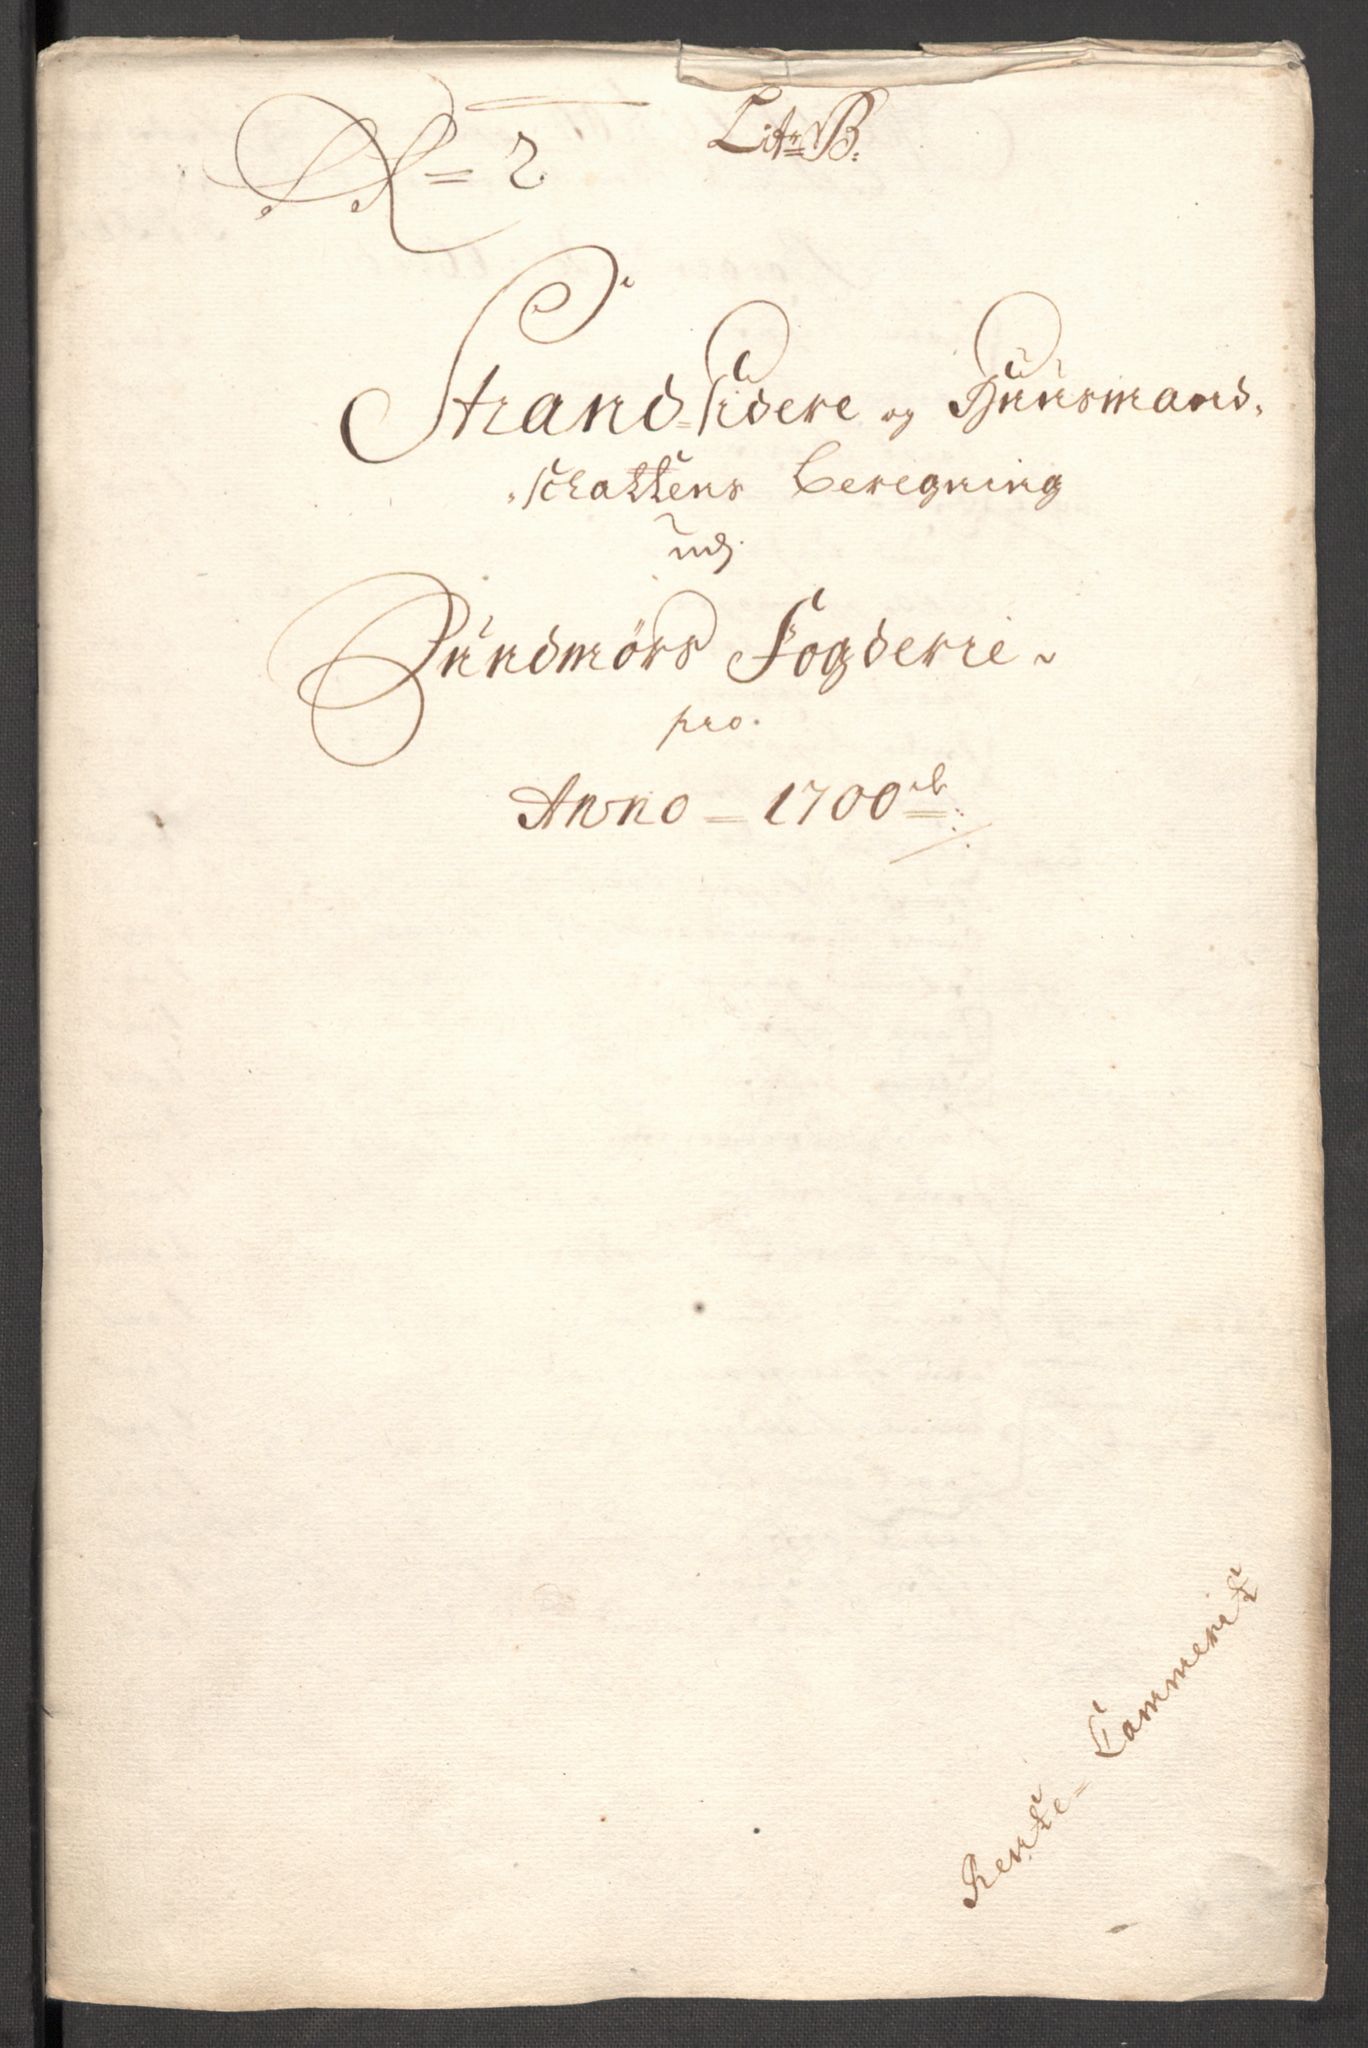 Litr B.
N = 2
Strand-sidere og Huusmand,
,schattens beregning
udj
Sundmörs Fogderie.
pro.
Anno = 1700
Rente-Cammerit